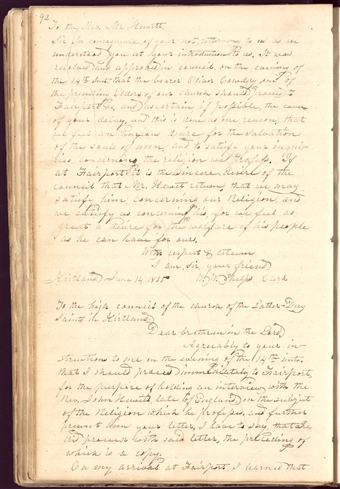 92
To the Rev. Mr. Hewitt.
Sir In consequence of your not returning to us as we
understood you at your introduction to us. It was
resolved and approved in council, on the evening of
the 14th Inst. that the bearer Oliver Cowdery one of
the presiding Elders of our church should proceed to
Fairport and ascertain if possible, the cause
of your delay, and this is done as one reason, that
we feel an anxious desire for the salvation
of the souls of men, and to satisfy your inquir-
ies concerning the religion we profess. If
at Fairport it is the sincere desire of the
council that Mr. Hewitt return, that we may
satisfy him concerning our Religion, and
he satisfy us concerning his, for we feel as
great a desire for the welfare of his people
as he can have for ours.
With respect & esteem
I am Sir, your friend
Kirtland June 14 1835 W. W. Phelps Clerk
To the high council of the church of the Latter-Day
Saints in Kirtland
Dear brethren in the Lord,
Agreeably to your in-
struction to me on the evening of the 14th inst.
that I should proceed immediately to Fairport,
for the purpose of holding an interview with the
Rev. John Hewitt late of England on the subject
of the Religion which he professes, and further
present him your letter, I have to say, that I
did present him said letter, the preceding of
which is a copy.
On my arrival at Fairport, I learned that